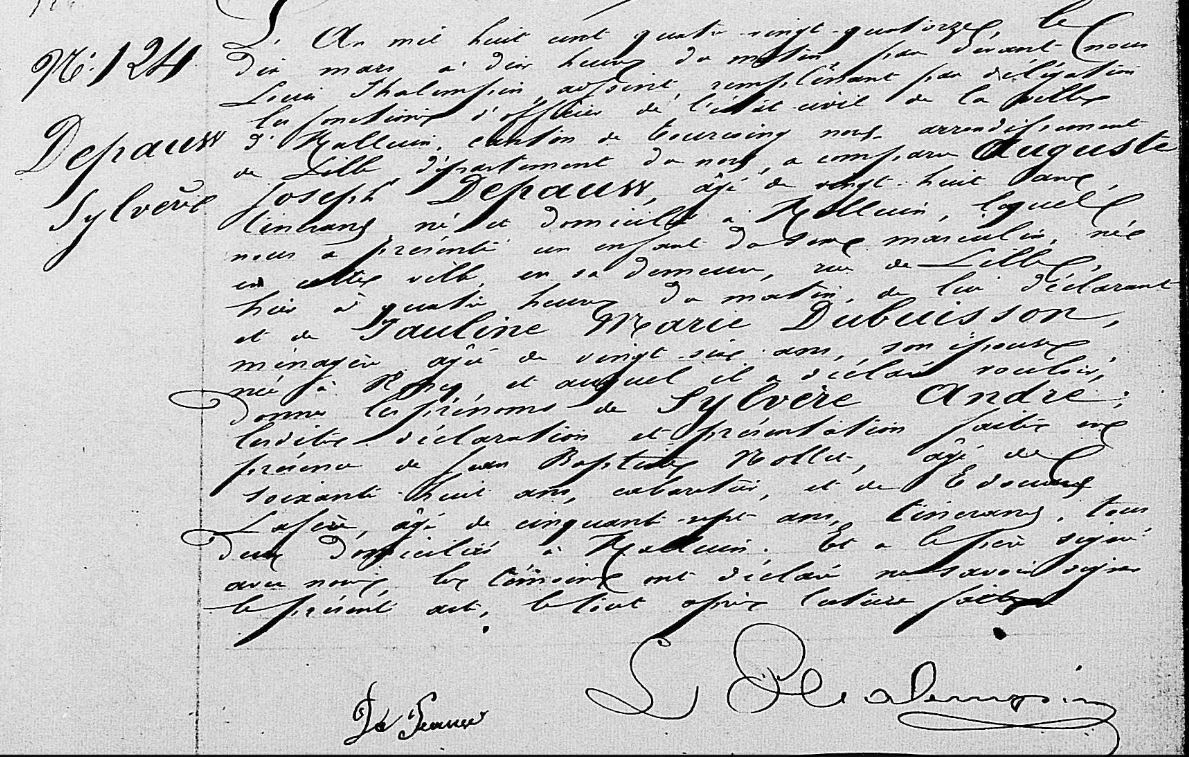 N°. 124
Depauw
Sylvère
L'An mil huit cent quatre-vingt-quatorze, le
dix mars à dix heures du matin, par devant nous
Louis Thalempin, adjoint, remplissant par délégation
les fonctions d'officier de l'état civil de la ville
d'Halluin, canton de Tourcoing nord, arrondissement
de Lille, département du nord, a comparu Auguste
Joseph Depauw, âgé de vingt-huit ans,
tisserand, né et domicilié à Halluin, lequel
nous a présenté un enfant du sexe masculin, né
en cette ville, en sa demeure, rue de Lille,
hier à quatre heures du matin, de lui déclarant
et de Pauline Marie Dubuisson,
ménagère, âgée de vingt-six ans, son épouse
née à et auquel il a déclaré vouloir
donner les prénoms de Sylvère André;
lesdites déclaration et présentation faites en
présence de Jean Baptiste Nollet, âgé de
soixante-huit ans, cabaretier, et de Edouard
âgé de cinquante-sept ans, tisserand, tous
deux domiciliés à Halluin. Et a le père signé
avec nous, les témoins ont déclaré ne savoir signer
le présent acte, le tout après lecture faite.